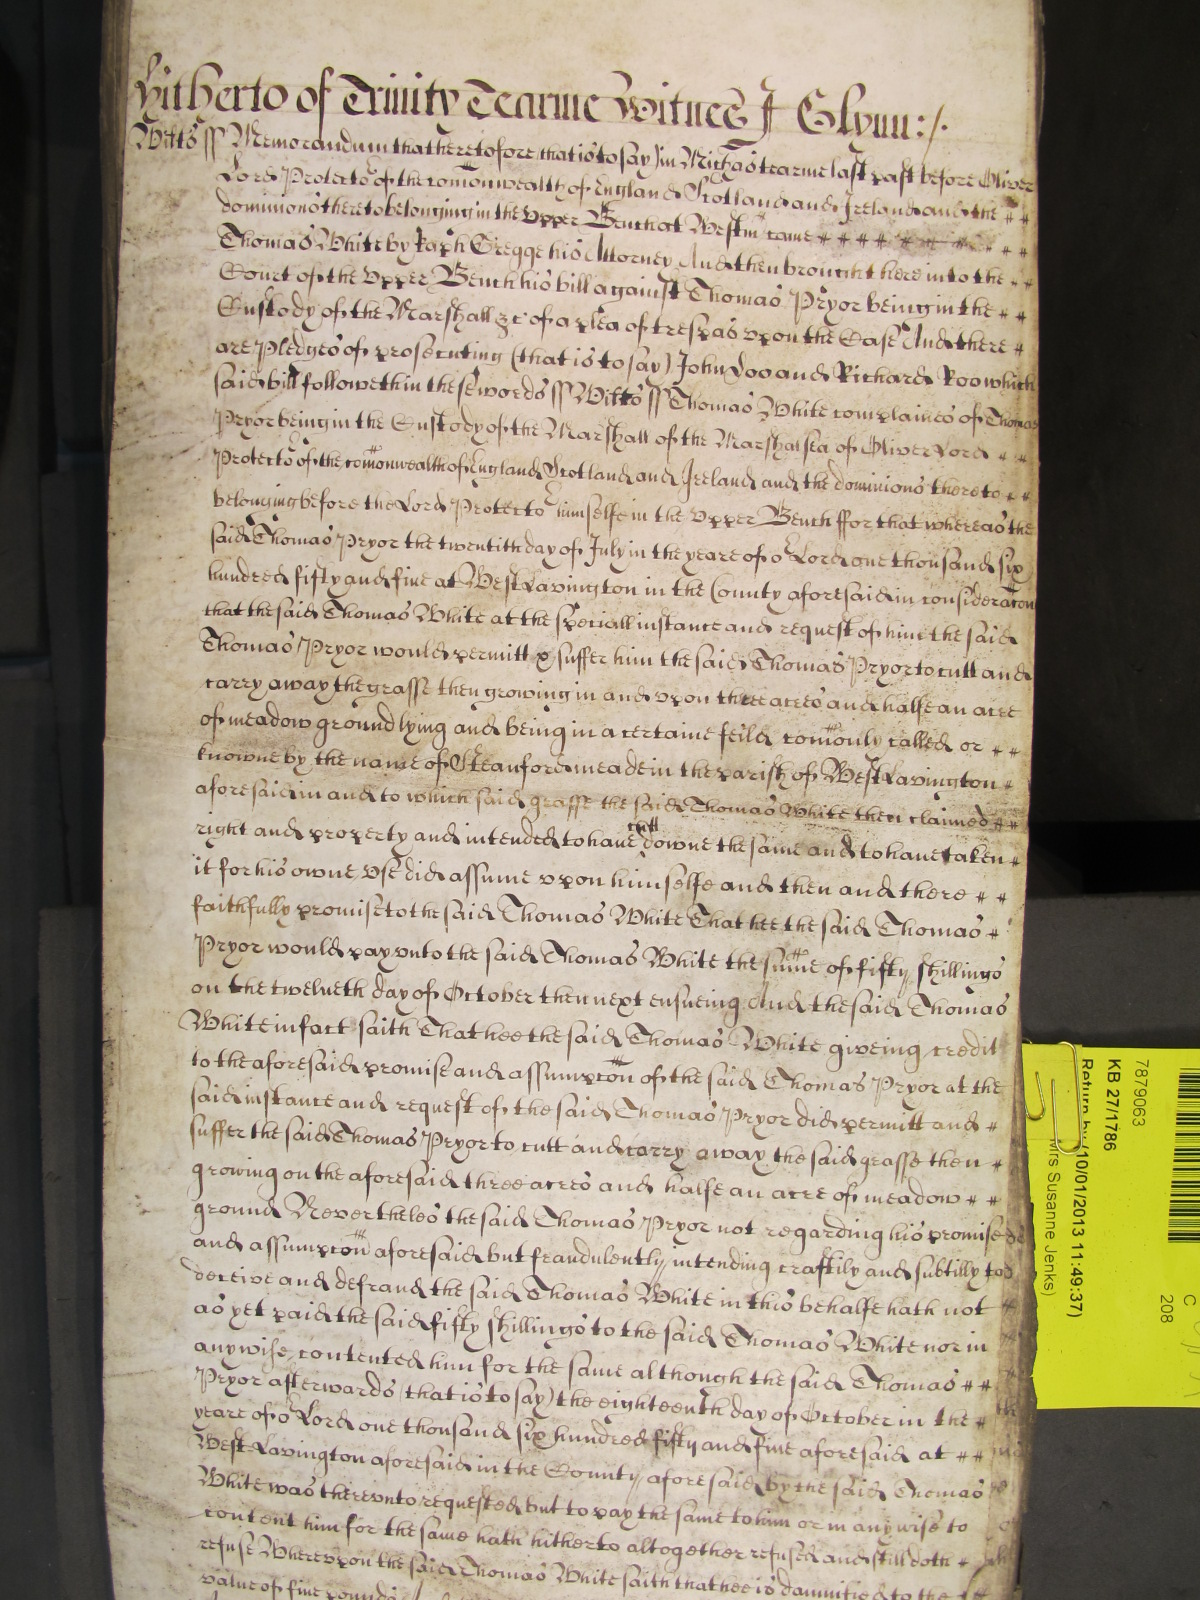 Hitherto of Trinity Tearme Witnes J Glynn:/.
Wilts ss Memorandum that heretofore (that is to say) in Michas tearme last past before Oliver
Lord Protector of the comonwealth of England Scotland and Ireland and the # #
dominions thereto belonging in the Upper Bench at Westm came # # # # # # # # # #
Thomas White by Raph Gregge his Attorney And then brought here into the # #
Court of the Upper Bench his bill against Thomas Pryor being in the # #
Custody of the Marshall &c of a plea of trespas upon the Case And there #
are Pledges of prosecuting (that is to say) John Doo and Richard Roo which
said bill followeth in these words ss Wilts ss Thomas White complaines of Thomas
Pryor being in the Custody of the Marshall of the Marshalsea of Oliver Lord # #
Protector of the comonwealth of England Scotland and Ireland and the dominions thereto # #
belonging before the Lord Protector himselfe in the Upper Bench ffor that whereas the
said Thomas Pryor the twentith day of July in the yeare of or Lord one thousand six
hundred fifty and five at West Lavington in the County aforesaid in consideracon
that the said Thomas White at the speciall instance and request of him the said
Thomas Pryor would permitt & suffer him the said Thomas Pryor to cutt and
carry away the grasse then growing in and upon three acres and halfe an acre
of meadow ground lying and being in a certaine feild comonly called or # #
knowne by the name of meade in the parish of West Lavington #
aforesaid in and to which said grasse the said Thomas White then claimed # #
right and property and intended to have cutt downe the same and to have taken #
it for his owne use did assume upon himselfe and then and there # #
faithfully promise to the said Thomas White That hee the said Thomas #
Pryor would pay unto the said Thomas White the sume of fifty shillings
on the twelveth day of October then next ensueing And the said Thomas
White in fact saith That hee the said Thomas White giveing credit
to the aforesaid promise and assumpcon of the said Thomas Pryor at the
said instance and request of the said Thomas Pryor did permitt and #
suffer the said Thomas Pryor to cutt and carry away the said grasse then #
growing on the aforesaid three acres and halfe an acre of meadow # #
ground Nevertheles the said Thomas Pryor not regarding his promise
and assumpcon aforesaid but fraudulently intending craftily and subtilly to
deceive and defraud the said Thomas White in this behalfe hath not #
as yet paid the said fifty shillings to the said Thomas White nor in
anywise contented him for the same although the said Thomas # #
Pryor afterwards (that is to say) the eighteenth day of October in the #
yeare of or Lord one thousand six hundred fifty and five aforesaid at # #
West Lavington aforesaid in the County aforesaid by the said Thomas
White was thereunto requested but to pay the same to him or in any wise to
content him for the same hath hitherto altogether refused and still doth #
refuse Whereupon the said Thomas White saith that hee is damnified to the #
value of five pounds
7879063
KB 27/1786
Return by (10/01/2013 11:49:37)
Mrs Susanne Jenks)
C
208